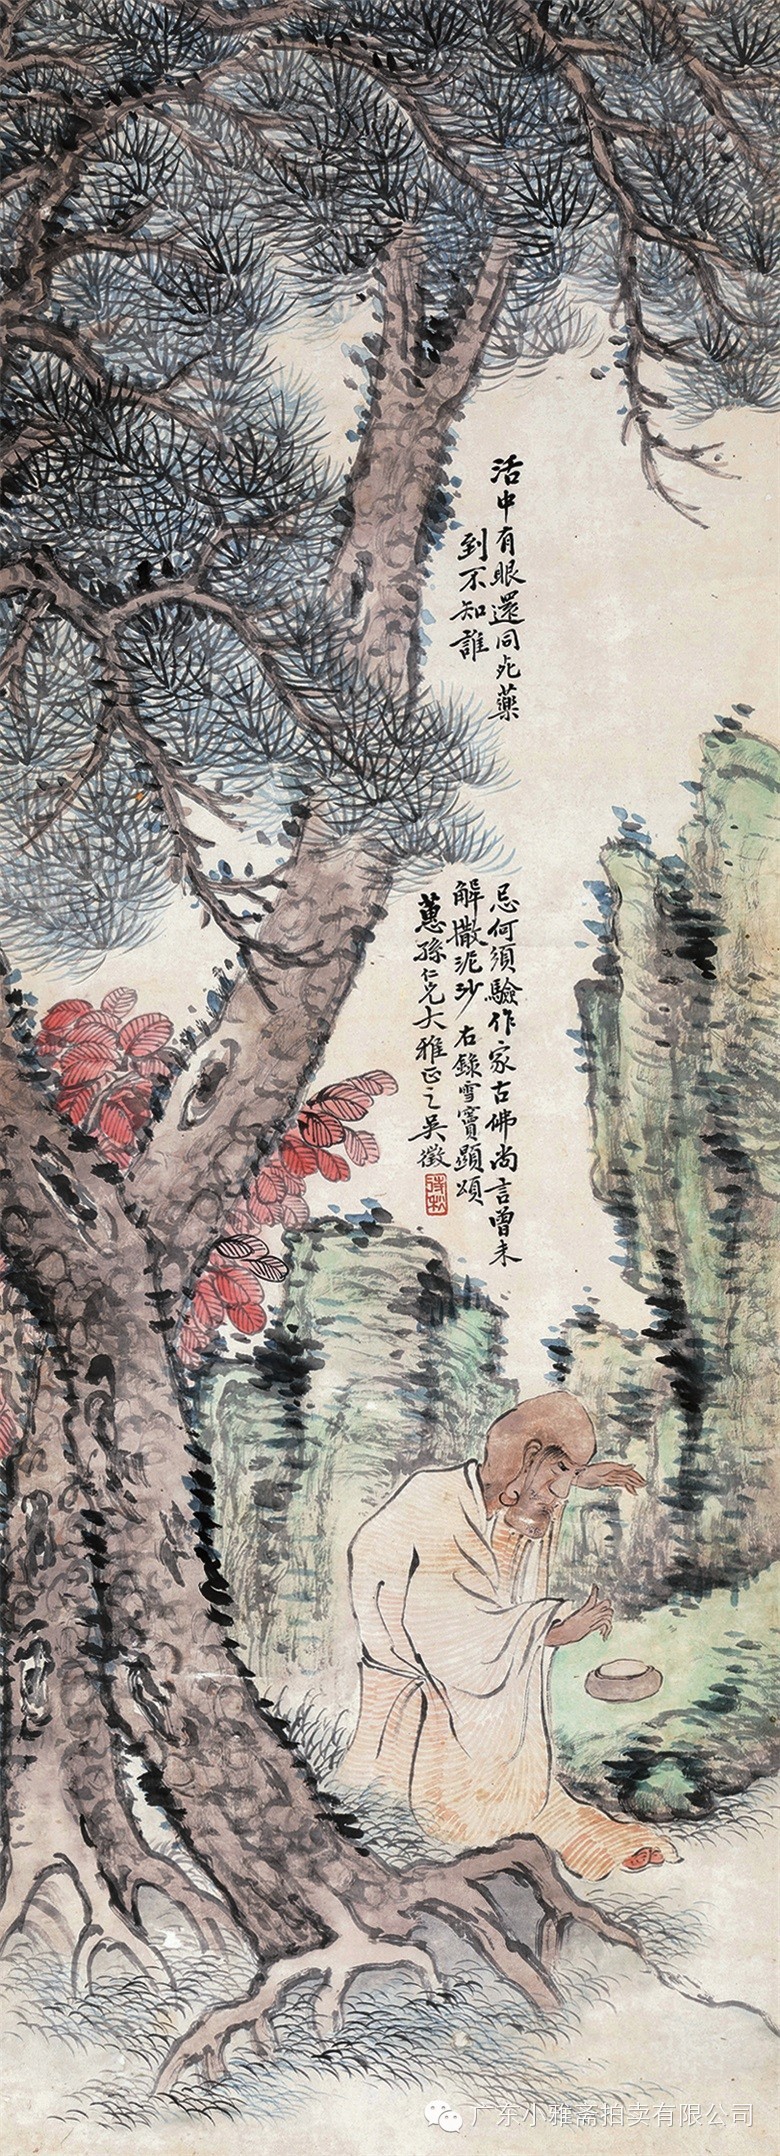 活中有眼還同死藥
忌何須驗作家古佛尚言曾未
到不知誰
解撒泥沙 右錄雪竇顯頌
蕙孫仁兄大雅正之吳徵
待秋
广东小雅斋拍卖有限公司